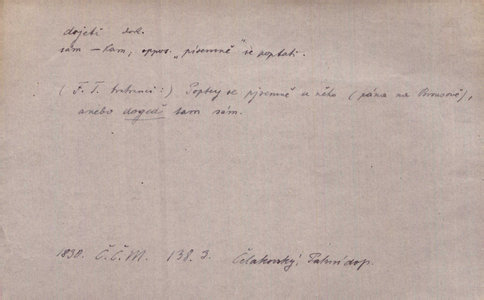 dojeti dok.
sám – kam, oppos. „písemně" se poptati.
(F. T. bratranci:) Poptey se pjsemně u něho (pána na Brusově),
anebo dogeď tam sám.
1830. Č.Č.M. 138. 3. Čelakovský, Pabrn dop.